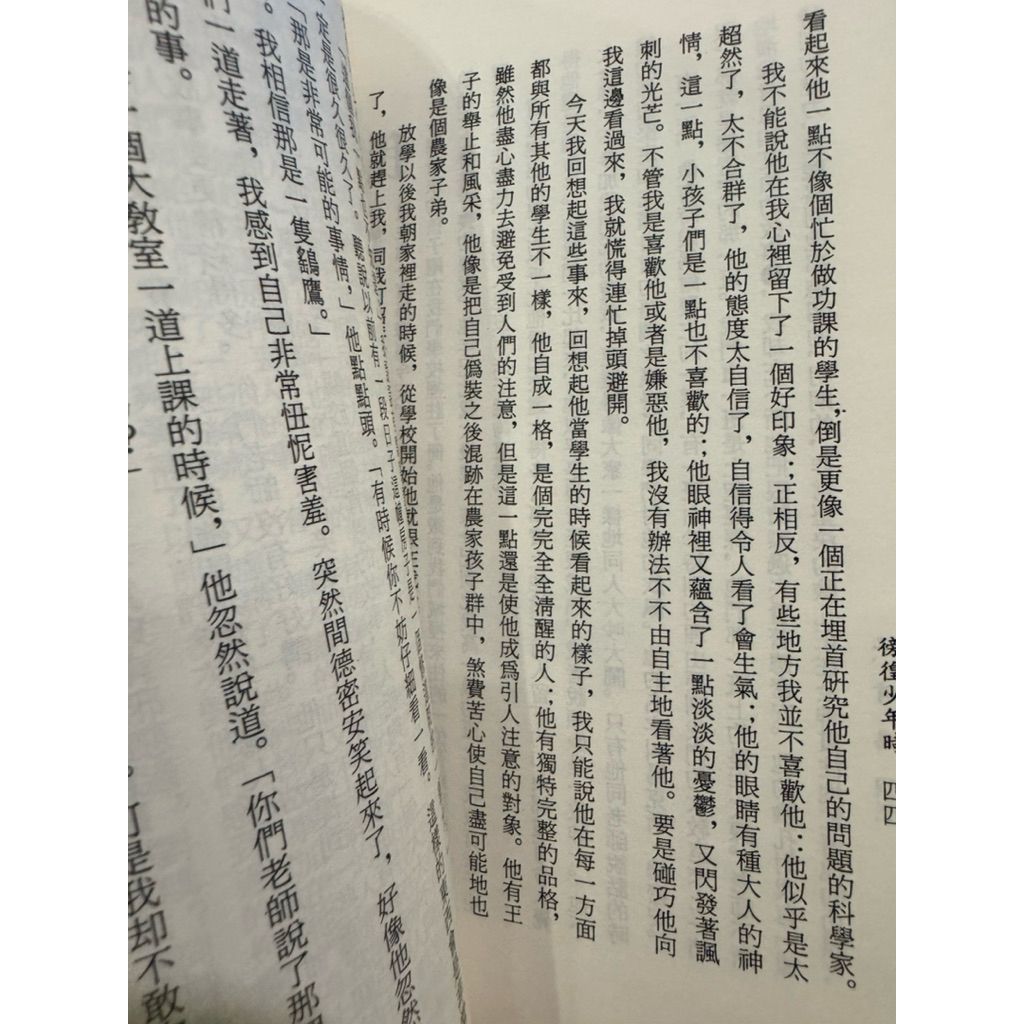 徬徨少年時 四四
看起來他一點不像個忙於做功課的學生,倒是更像一個正在埋首硏究他自己的問題的科學家。
我不能說他在我心裡留下了一個好印象;正相反,有些地方我並不喜歡他:他似乎是太
超然了,太不合群了,他的態度太自信了,自信得令人看了會生氣;他的眼睛有種大人的神
情,這一點,小孩子們是一點也不喜歡的;他眼神裡又蘊含了一點淡淡的憂鬱,又閃發著諷
刺的光芒。不管我是喜歡他或者是嫌惡他,我沒有辦法不不由自主地看著他。要是碰巧他向
我這邊看過來,我就慌得連忙掉頭避開。
今天我回想起這些事來,回想起他當學生的時候看起來的樣子,我只能說他在每一方面
都與所有其他的學生不一樣,他自成一格,是個完完全全清醒的人;他有獨特完整的品格,
雖然他盡心盡力去避免受到人們的注意,但是這一點還是使他成爲引人注意的對象。他有王
子的舉止和風采,他像是把自己僞裝之後混跡在農家孩子群中,煞費苦心使自己盡可能地也
像是個農家子弟。
放學以後我朝家裡走的時候,從學校開始他就跟在我
了,他就趕上我,同我打
定是很久很久了。聽說以前有一段日子這
「那是非常可能的事情,」他點點頭。「有時候你不妨仔細看一看。這樣的東西
。我相信那是一隻鷂鷹。」
們一道走著,我感到自己非常忸怩害羞。突然間德密安笑起來了,好像他忽然
的事。
個大教室一道上課的時候,」他忽然說道。「你們老師說了那
可是我却不敢